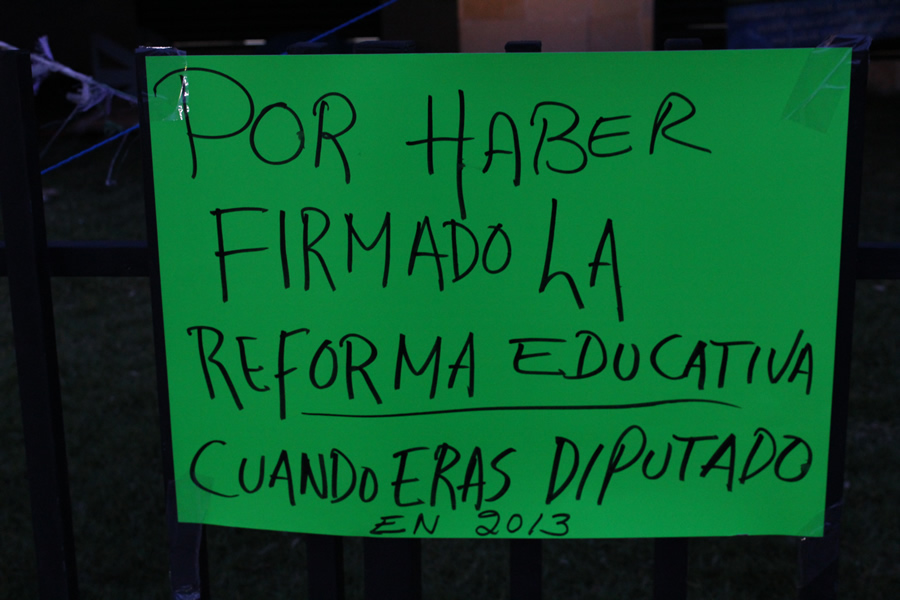 POR HABER
FIRMADO LA
REFORMA EDUCATIVA
CUANDO ERAS DIPUTADO
EN 2013